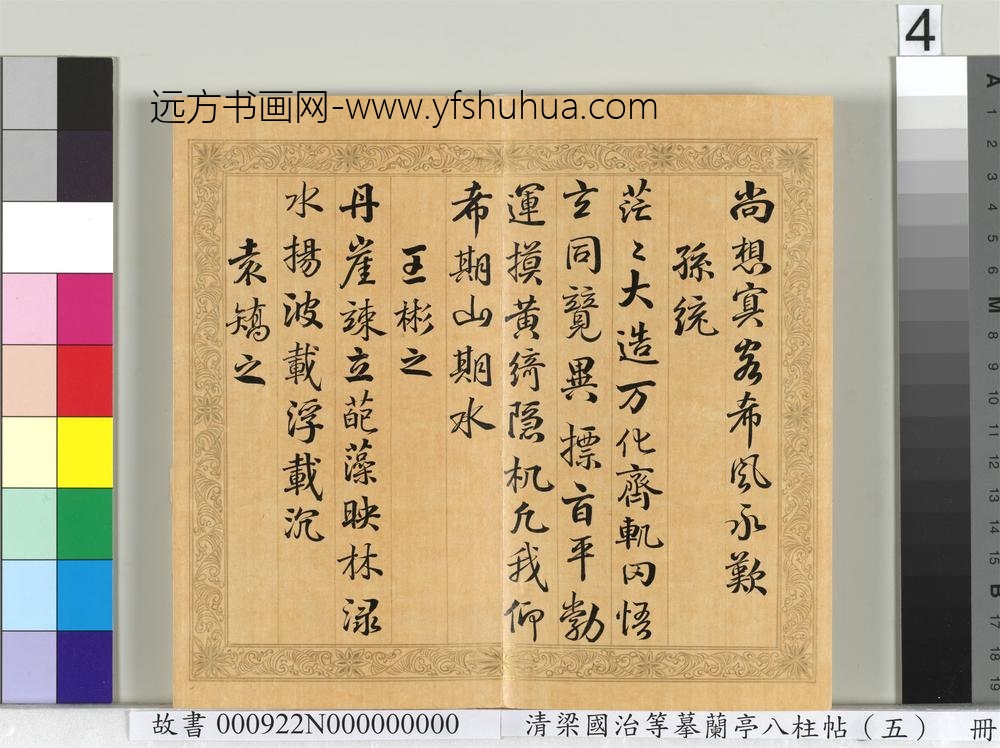 4
远方书画网-www.yfshuhua.com
尚想冥客希風永歎
孫統
茫〻大造万化齊軌罔悟
玄同競異摽旨平勃
運摸黃綺隐机凡我仰
希期山期水
王彬之
丹崖竦立葩藻映林渌
水揚波載浮載沉
袁矯之
A 1 2 3 4 5 6 M 8 9 10 11 12 13 14 15 B 17 18 19
故書 000922N000000000
清梁國治等摹蘭亭八柱帖（五） 冊